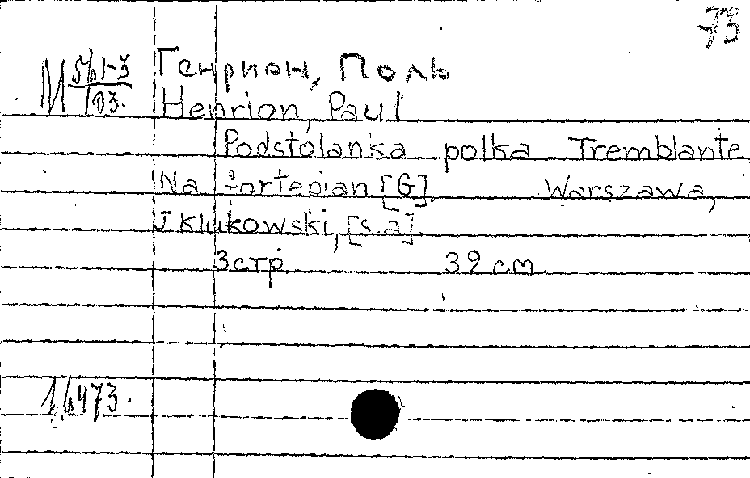 73
M 5/61-3 Генрион, Поль
103. Henrion, Paul
Podstolanka polka Tremblante
Na fortepian [G] Warszawa,
J Klukowski, [s.a]
3стр. 32 см